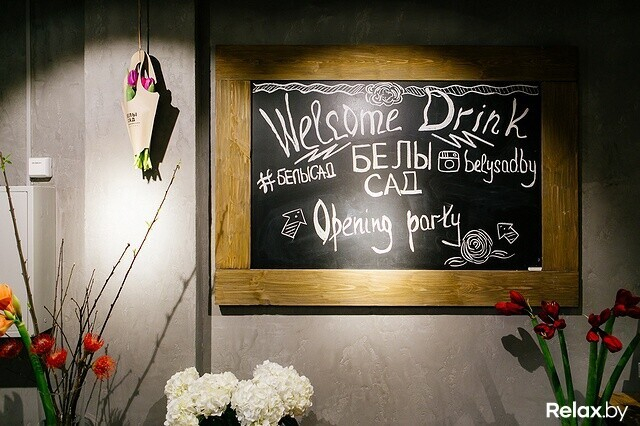 БЕЛЫ
САД
Welsome Drink
#БЕЛЫСАД
БЕЛЫ
САД
belysad.by
Opening party
Relax.by